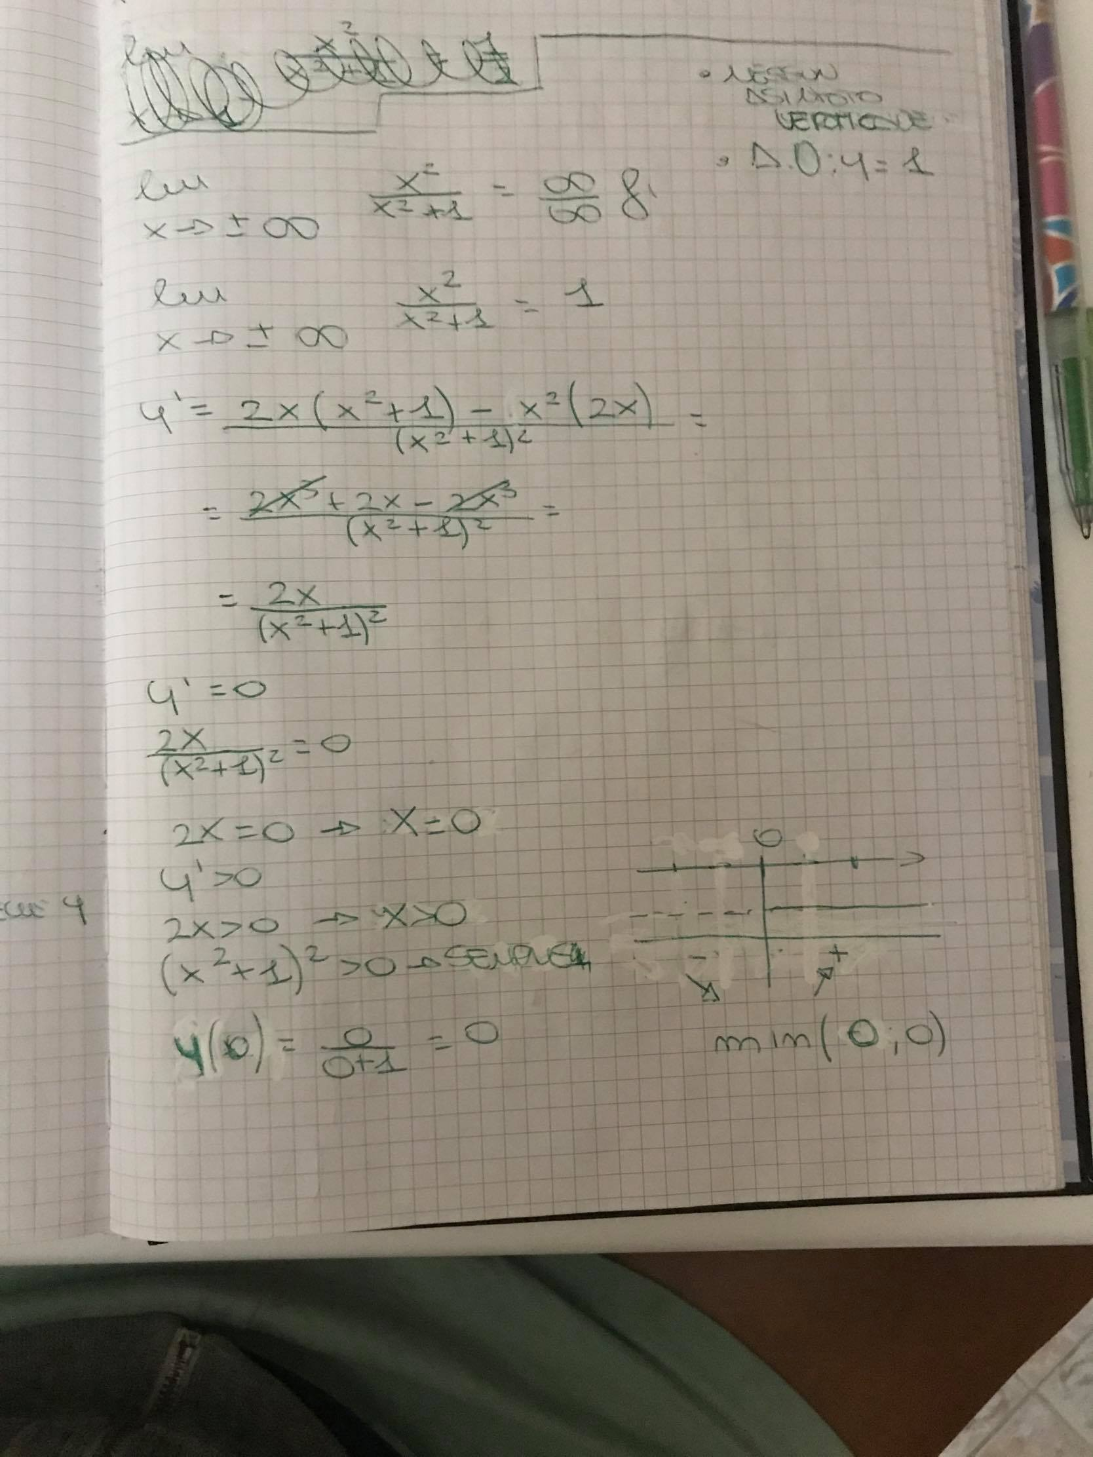 • NESSUN
ASINTOTO
VERTICALE
• A.O: y = 1
lim x→±∞ x²/(x²+1) = ∞/∞ f.i
lim x→±∞ x²/(x²+1) = 1
y' = (2x(x²+1) - x²(2x))/(x²+1)² =
= (2x³ + 2x - 2x³)/(x²+1)² =
= 2x/(x²+1)²
y' = 0
2x/(x²+1)² = 0
2x = 0 → x = 0
0
y' > 0
2x > 0 → x > 0
(x²+1)² > 0 → SEMPRE
- +
y(0) = 0/(0+1) = 0
min(0;0)